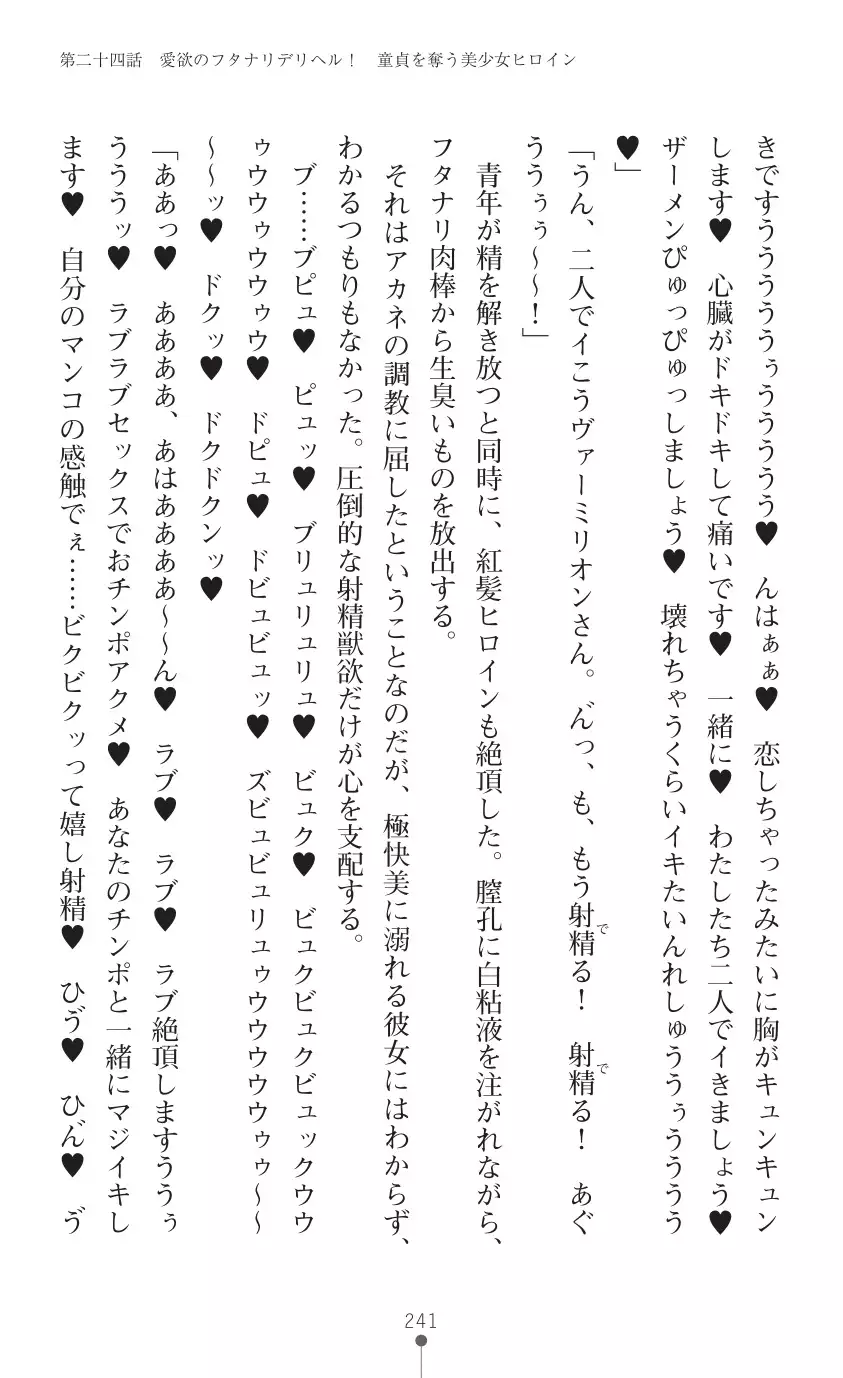 第二十四話　愛欲のフタナリデリヘル！　童貞を奪う美少女ヒロイン
きですうううううぅううううう♥　んはぁぁ♥　恋しちゃったみたいに胸がキュンキュン
します♥　心臓がドキドキして痛いです♥　一緒に♥　わたしたち二人でイきましょう♥
ザーメンぴゅっぴゅっしましょう♥　壊れちゃうくらいイキたいんれしゅううぅうううう
♥」
「うん、二人でイこうヴァーミリオンさん。ん゛っ、も、もう射精る！　射精る！　あぐ
ううぅぅ〜〜！」
　青年が精を解き放つと同時に、紅髪ヒロインも絶頂した。膣孔に白粘液を注がれながら、
フタナリ肉棒から生臭いものを放出する。
　それはアカネの調教に屈したということなのだが、極快美に溺れる彼女にはわからず、
わかるつもりもなかった。圧倒的な射精獣欲だけが心を支配する。
　ブ……ブピュ♥　ピュッ♥　ブリュリュリュ♥　ビュク♥　ビュクビュクビュックウウ
ゥウウゥウウゥウ♥　ドピュ♥　ドビュビュッ♥　ズビュビュリュゥウウウウウゥゥ〜〜
〜〜ッ♥　ドクッ♥　ドクドクンッ♥
「ああっ♥　ああああ、あはああああ〜〜ん♥　ラブ♥　ラブ♥　ラブ絶頂しますううぅ
うううッ♥　ラブラブセックスでおチンポアクメ♥　あなたのチンポと一緒にマジイキし
ます♥　自分のマンコの感触でぇ……ビクビクッって嬉し射精♥　ひゔ♥　ひん゛♥　ゔ
241